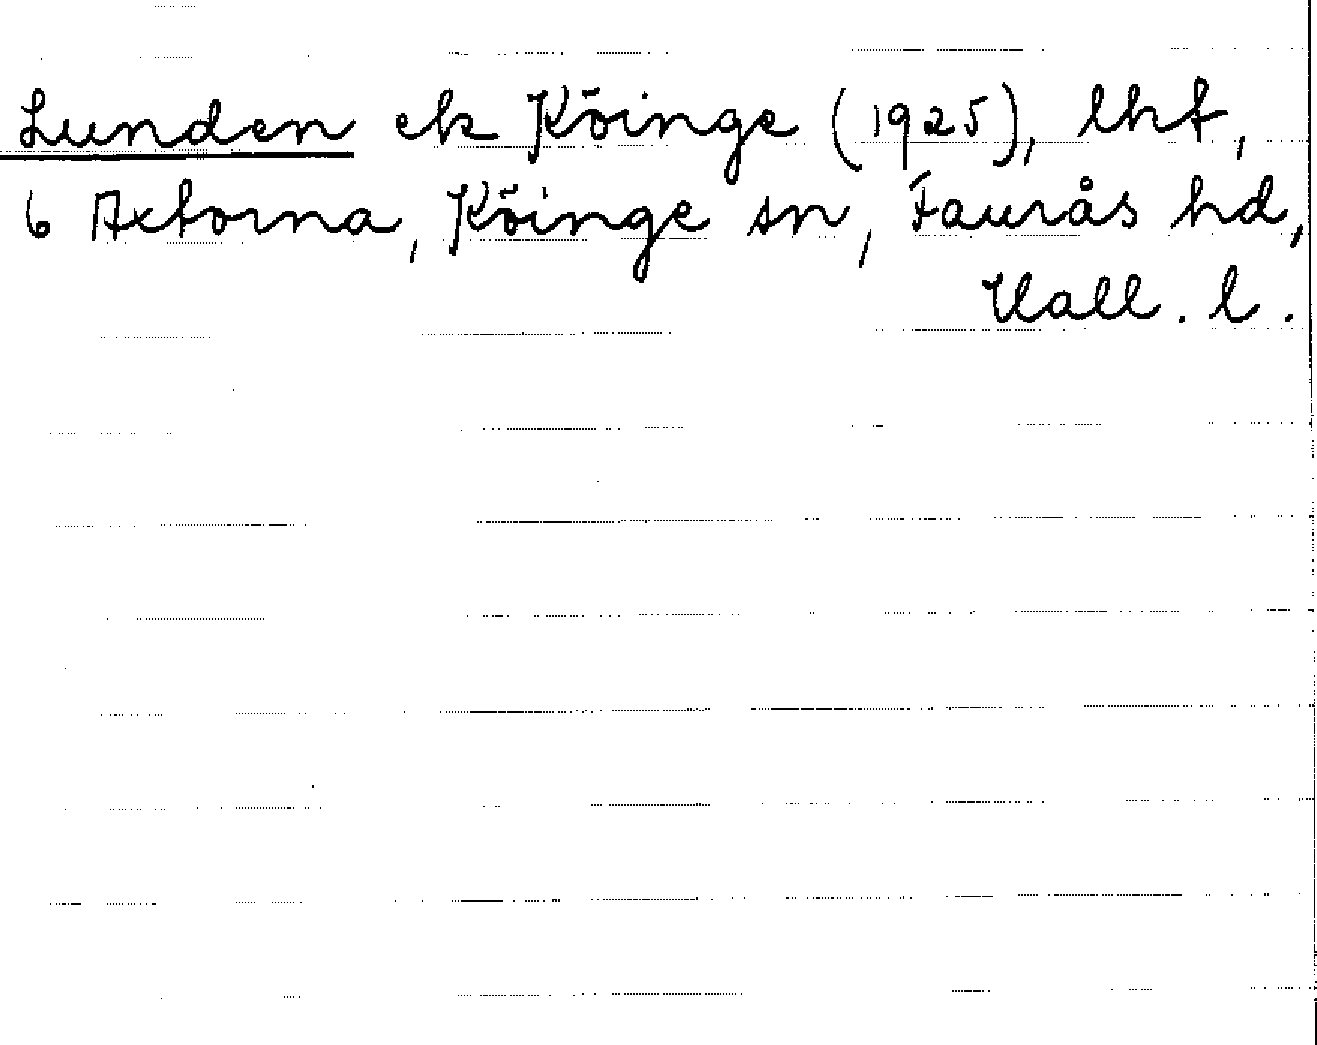 Lunden ek Köinge (1925), lht,
6 Axtorna, Köinge sn, Faurås hd,
Hall. l.